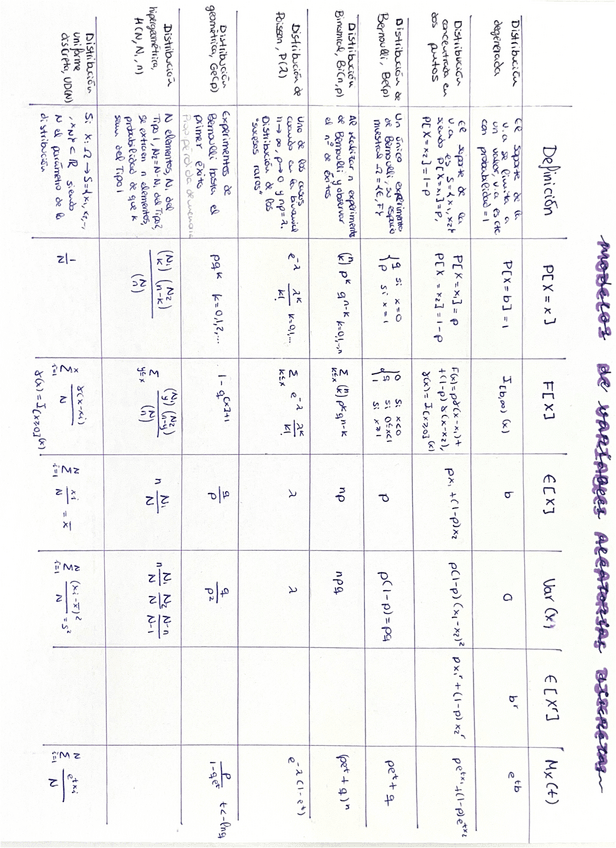 MODELOS DE VARIABLES ALEATORIAS DISCRETAS
Definición
P[X=x]
F[X]
E[X]
Var(X)
E[Xʳ]
Mx(t)
Distribución
degenerada
El soporte de la
v.a se limita a
un valor, v.a es cte
con probabilidad = 1
P[X=b] = 1
I[b,∞) (x)
b
0
bʳ
e^tb
Distribución
concentrada en
dos puntos
El soporte de la
v.a es S={x₁,x₂},
siendo P[X=x₁]=p,
P[X=x₂]=1-p
P[X=x₁]=p
P[X=x₂]=1-p
F(x)=pγ(x-x₁)+
+(1-p)γ(x-x₂),
γ(x)=I[x≥0](x)
px₁+(1-p)x₂
p(1-p)(x₁-x₂)²
px₁ʳ+(1-p)x₂ʳ
pe^tx₁+(1-p)e^tx₂
Distribución de
Bernoulli, Be(p)
Un único experimento
de Bernoulli, su espacio
muestral Ω={E,F}
{q si x=0
p si x=1
{0 si x<0
q si 0≤x<1
1 si x≥1
p
p(1-p)=pq
pe^t+q
Distribución
Binomial, Bi(n,p)
Se realizan n experimentos
de Bernoulli y observar
el nº de éxitos
(n k) p^k q^n-k k=0,1,..n
Σ k≤x (n k) p^k q^n-k
np
npq
(pe^t+q)^n
Distribución de
Poisson, P(λ)
Uno de los casos
cuando en la binomial
n→∞, p→0 y np=λ.
Distribución de los
"sucesos raros"
e^-λ λ^k/k! k=0,1,...
Σ k≤x e^-λ λ^k/k!
λ
λ
e^-λ(1-e^t)
Distribución
geométrica, Ge(p)
Experimentos de
Bernoulli hasta el
primer éxito
pq^k k=0,1,2,...
1-q^[x]+1
q/p
q/p²
p/(1-qe^t) t<-lnq
Distribución
hipergeométrica,
H(N,N₁,n)
N elementos, N₁ del
Tipo 1, N₂=N-N₁ del Tipo 2,
se extraen n elementos,
probabilidad de que k
sean del Tipo 1
(N₁ k)(N₂ n-k)/(N n)
Σ y≤x (N₁ y)(N₂ n-y)/(N n)
n N₁/N
n N₁/N N₂/N N-n/N-1
Distribución
uniforme
discreta, UD(N)
Si X: Ω→S={x₁,x₂,...,
,xN}⊂ℝ siendo
N el parámetro de la
distribución
1/N
Σ i=1 γ(x-xi)/N
γ(x)=I[x≥0](x)
Σ i=1 N xi/N = x̄
Σ i=1 N (xi-x̄)²/N = s²
Σ i=1 N e^txi/N